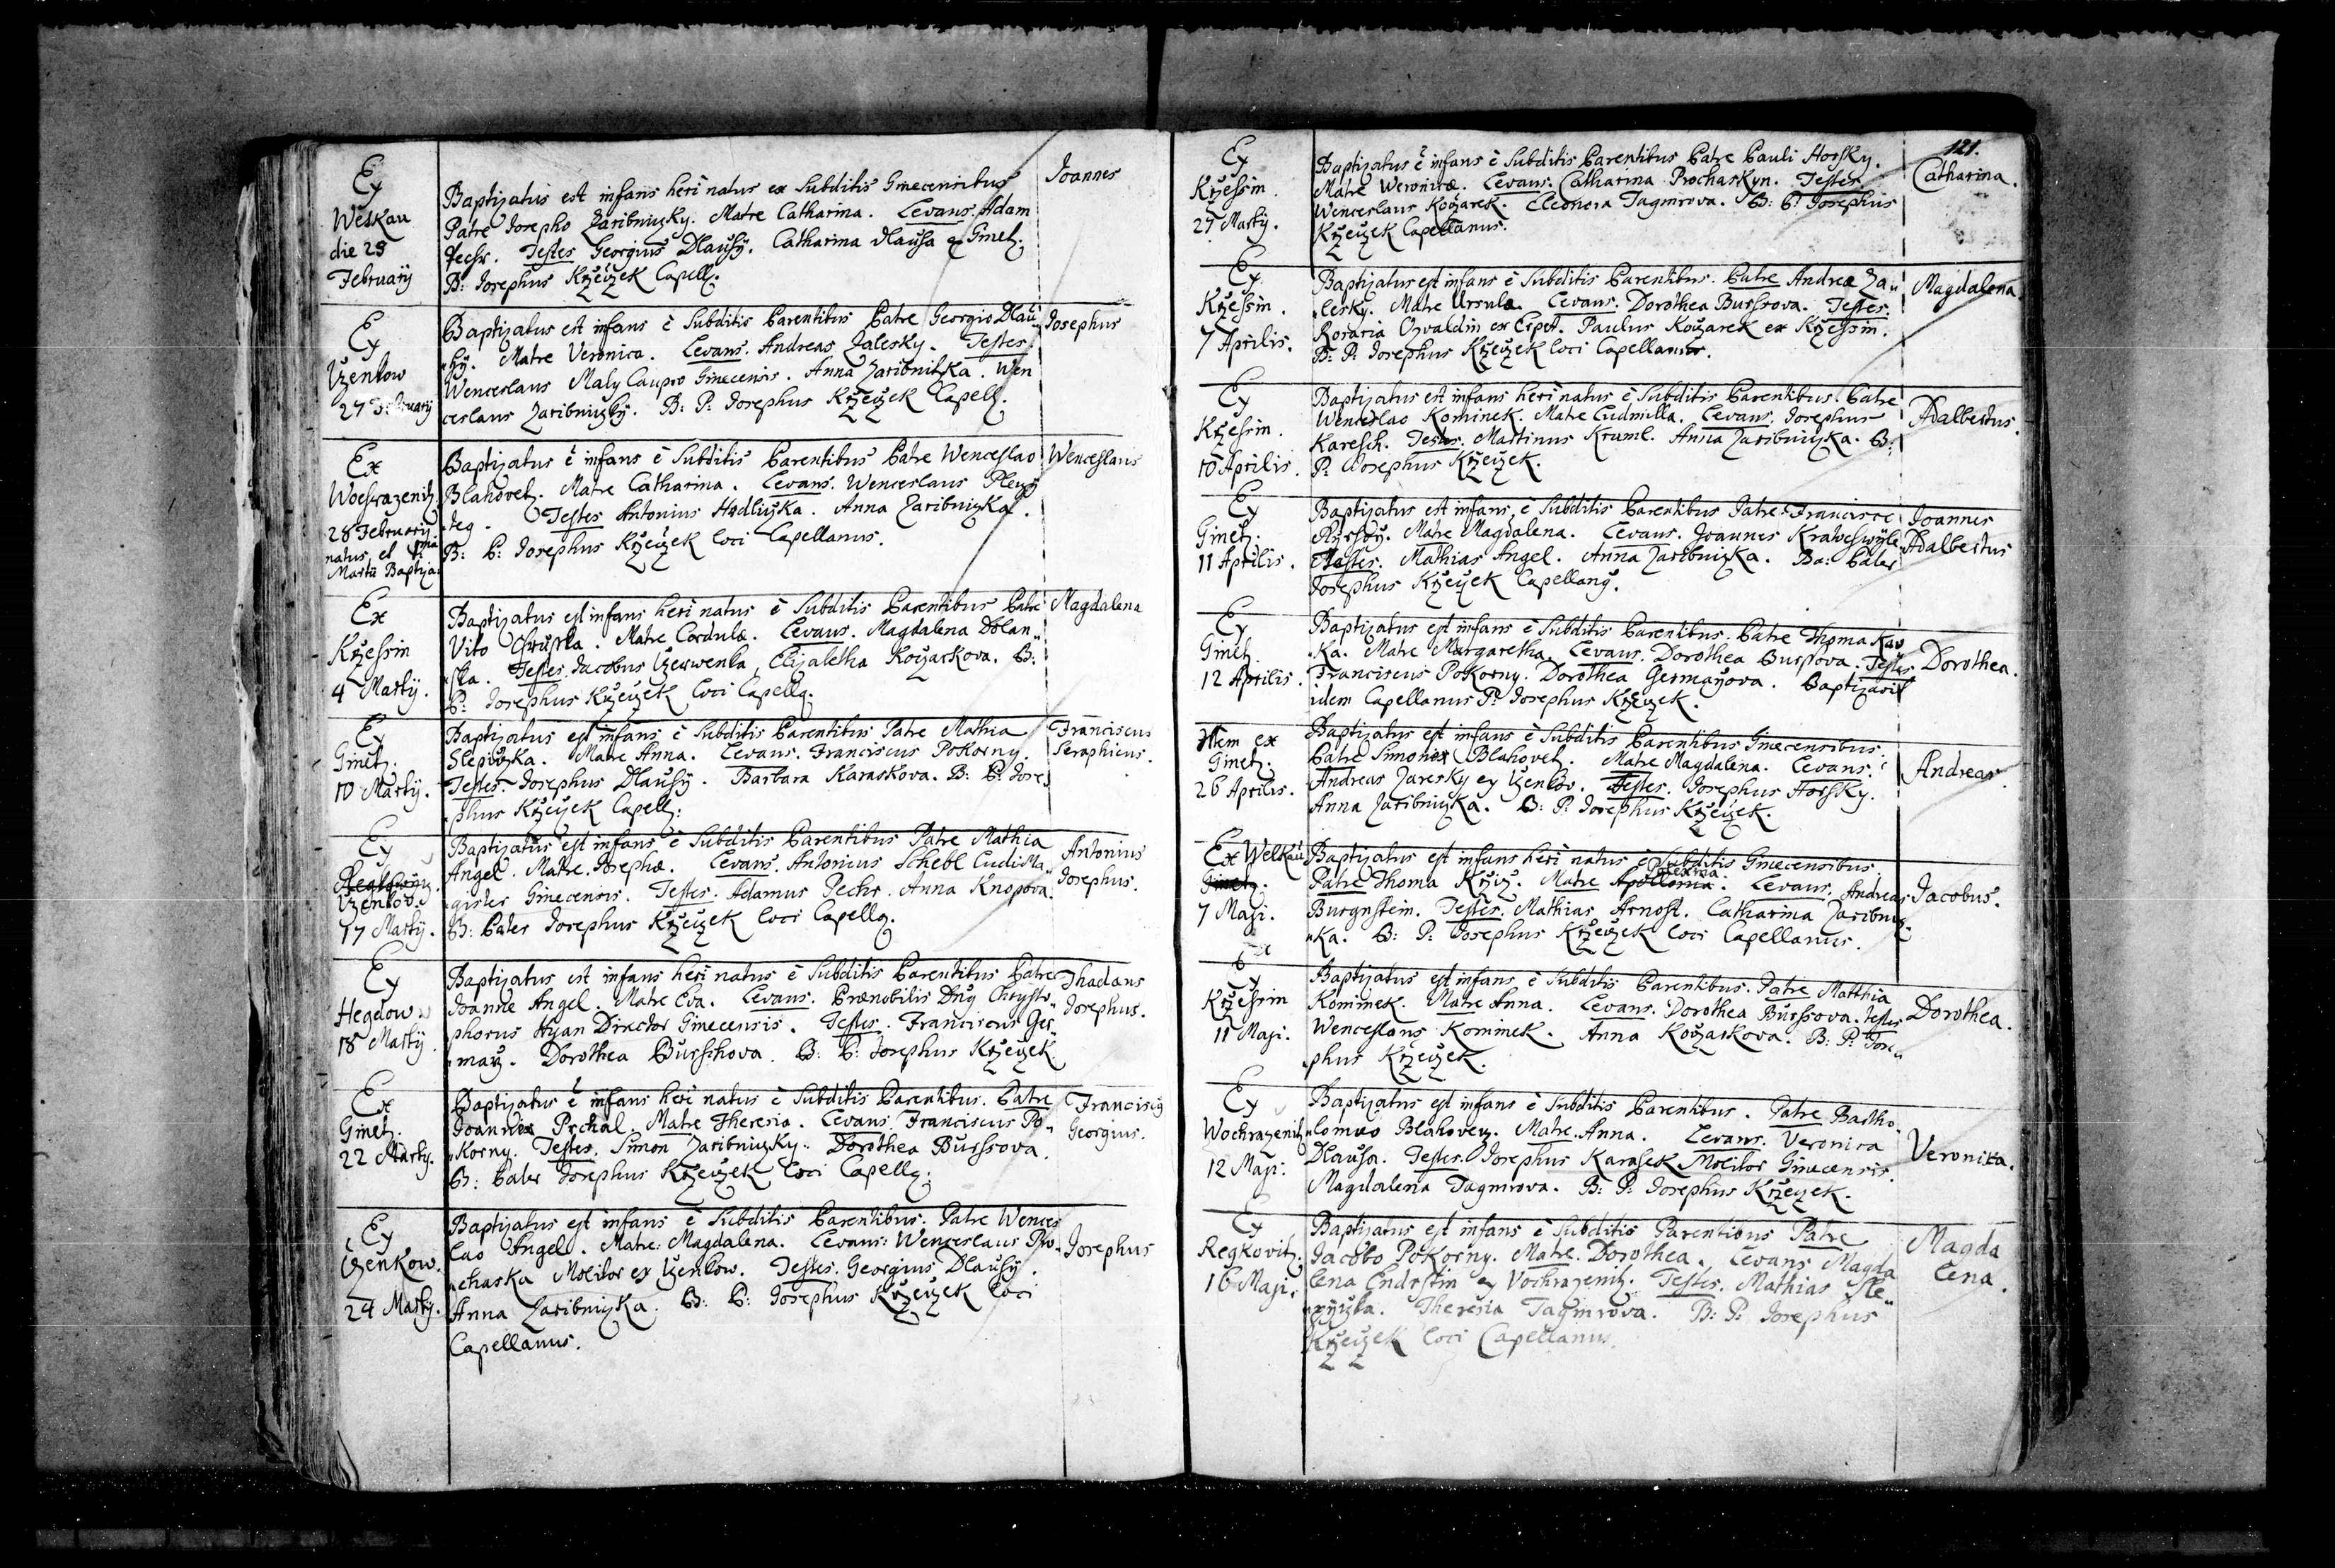 Ex
Welkau
die 25
Februarÿ
Baptizatus est infans heri natus ex Subditis Ginecensibus
Patre Josepho Zaribnizky. Matre Catharina. Levans. Adam
Pechr. Testes Georgius Dlauhÿ. Catharina Dlauha ex Ginetz.
B: Josephus Krzeczek Capell.
Joannes
Ex
Czenkow
27 Februarÿ
Baptizatus est infans è Subditis Parentibus Patre Georgio Dlau
hÿ. Matre Veronica. Levans. Andreas Zalesky. Testes
Wenceslaus Maly Caupo Ginecensis. Anna Zaribnitzka. Wen
ceslaus Zaribnizky. B: P: Josephus Krzeczek Capell.
Josephus
Ex
Wochrazenitz
28 Februarÿ
natus, et
Martii Baptiza
Baptizatus ē infans è Subditis Parentibus Patre Wenceslao
Blahovetz. Matre Catharina. Levans. Wenceslaus
teg. Testes Antonius Hedliczka. Anna Zaribnizka.
B: P: Josephus Krzeczek loci Capellanus.
Wenceslaus
Ex
Krzessin
4 Martÿ.
Baptizatus est infans heri natus è Subditis Parentibus Patre
Vito Chrustka. Matre Cordula. Levans. Magdalena Dolan
ska. Testes. Jacobus Czerwenka, Elizabetha Koczarkova. B:
P: Josephus Krzeczek loci Capellꝯ.
Magdalena
Ex
Ginetz.
10 Martÿ.
Baptizatus est infans è Subditis Parentibus Patre Mathia
Slepiczka. Matre Anna. Levans. Franciscus Pokorny
Testes. Josephus Dlauhÿ. Barbara Karaskova. B: P: Jose
phus Krzeczek Capell:
Franciscus
Seraphicus.
Ex
Czenkov.
17 Martÿ.
Baptizatus est infans è Subditis Parentibus Patre Mathia
Angel. Matre Josepha. Levans. Antonius Schebl Ludi Ma
gister Ginecensis. Testes. Adamus Pechr. Anna Knopova.
B: Pater Josephus Krzeczek loci Capellꝯ.
Antonius
Josephus.
Ex
Hegdow
18 Martÿ
Baptizatus est infans heri natus è Subditis Parentibus Patre
Joanne Angel. Matre Eva. Levans. Prænobilis Dnꝯ Chrysto
phorus Hÿan Director Ginecensis. Testes. Franciscus Ger
maÿ. Dorothea Burschova. B: P: Josephus Krzeczek
Thadaus
Josephus.
Ex
Ginetz.
22 Martÿ.
Baptizatus ē infans heri natus è Subditis Parentibus. Patre
Joanne Prchal. Matre Theresia. Levans. Franciscus Po
korny. Testes. Simon Zaribnizky. Dorothea Burssova.
B: Pater Josephus Krzeczek loci Capellꝯ.
Franciscꝯ
Georgius.
Ex
Czenkow.
24 Martÿ.
Baptizatus est infans è Subditis Parentibus. Patre Wences
lao Angel. Matre: Magdalena. Levans: Wenceslaus Pro
chaska Molitor ex Czenkow. Testes. Georgius Dlauhÿ.
Anna Zaribnizka. B: P: Josephus Krzeczek loci
Capellanus.
Josephus
121.
Ex
Krzessin.
27 Martÿ.
Baptizatus ē infans è Subditis Parentibus Patre Pauli Horsky.
Matre Weronica. Levans. Catharina Prochaskyn. Testes
Wenceslaus Koczarek. Eleonora Tagmrova. B: P: Josephus
Krzeczek Capellanus.
Catharina.
Ex
Krzessin.
7 Aprilis.
Baptizatus est infans è Subditis Parentibus. Patre Andrea Za
lesky. Matre Ursula. Levans. Dorothea Burssova. Testes.
Rosaria Oswaldin ex Erpet. Paulus Koczarek ex Krzessin.
B: P: Josephus Krzeczek loci Capellanus.
Magdalena
Ex
Krzessin.
10 Aprilis.
Baptizatus est infans heri natus è Subditis Parentibus Patre
Wenceslao Kominek. Matre Ludmilla. Levans. Josephus
Karesch. Testes. Martinus Kruml. Anna Zaribnizka. B:
P: Josephus Krzeczek.
Adalbertus.
Ex
Ginetz.
11 Aprilis.
Baptizatus est infans, è Subditis Parentibus Patre Francisce
Matre Magdalena. Levans. Joannes
Testes. Mathias Angel. Anna Zaribnizka. Ba: Pater
Josephus Krzeczek Capellanꝯ.
Joannes
Adalbertus
Ex
Ginetz
12 Aprilis.
Baptizatus est infans è Subditis Parentibus. Patre Thoma Kav
ka. Matre Margaretha. Levans. Dorothea Burssova. Testes
Franciscus Pokorny. Dorothea Germaÿova. Baptizavit
idem Capellanus P: Josephus Krzeczek.
Dorothea.
Item ex
Ginetz.
26 Aprilis.
Baptizatus est infans è Subditis Parentibus Ginecensibus.
Patre Simone Blahovetz. Matre Magdalena. Levans.
Andreas Zaresky ex Czenkov. Testes. Josephus Horsky.
Anna Zaribnizka. B: P: Josephus Krzeczek.
Andreas
Ex Welkau
Ginetz.
7 Maji.
Baptizatus est infans heri natus è Subditis Ginecensibus
Patre Thoma Krziz. Matre Apollonia. Levans. Andreas
Burgnstein. Testes. Mathias Arnost. Catharina Zaribniz
ka. B: P: Josephus Krzeczek loci Capellanus.
Jacobus.
Ex
Krzessin
11 Maji.
Baptizatus est infans è Subditis Parentibus. Patre Matthia
Kominek. Matre Anna. Levans. Dorothea Burssova. Testes
Wenceslaus Kominek. Anna Koczarkova. B: P: Jose
phus Krzeczek.
Dorothea.
Ex
Wochrazenitz
12 Maji.
Baptizatus est infans è Subditis Parentibus. Patre Bartho
lomæo Blahovez. Matre. Anna. Levans. Veronica
Dlauha. Testes. Josephus Karasek Molitor Ginecensis.
Magdalena Tagmrova. B: P: Josephus Krzeczek.
Veronica.
Ex
Regkovitz.
16 Maji.
Baptizatus est infans è Subditis Parentibus Patre
Jacobo Pokorny. Matre. Dorothea. Levans Magda
lena Endrstin ex Vochrazenitz. Testes. Mathias Sle
pÿczka. Theresia Tagmrova. B: P: Josephus
Krzeczek loci Capellanus.
Magda
lena.